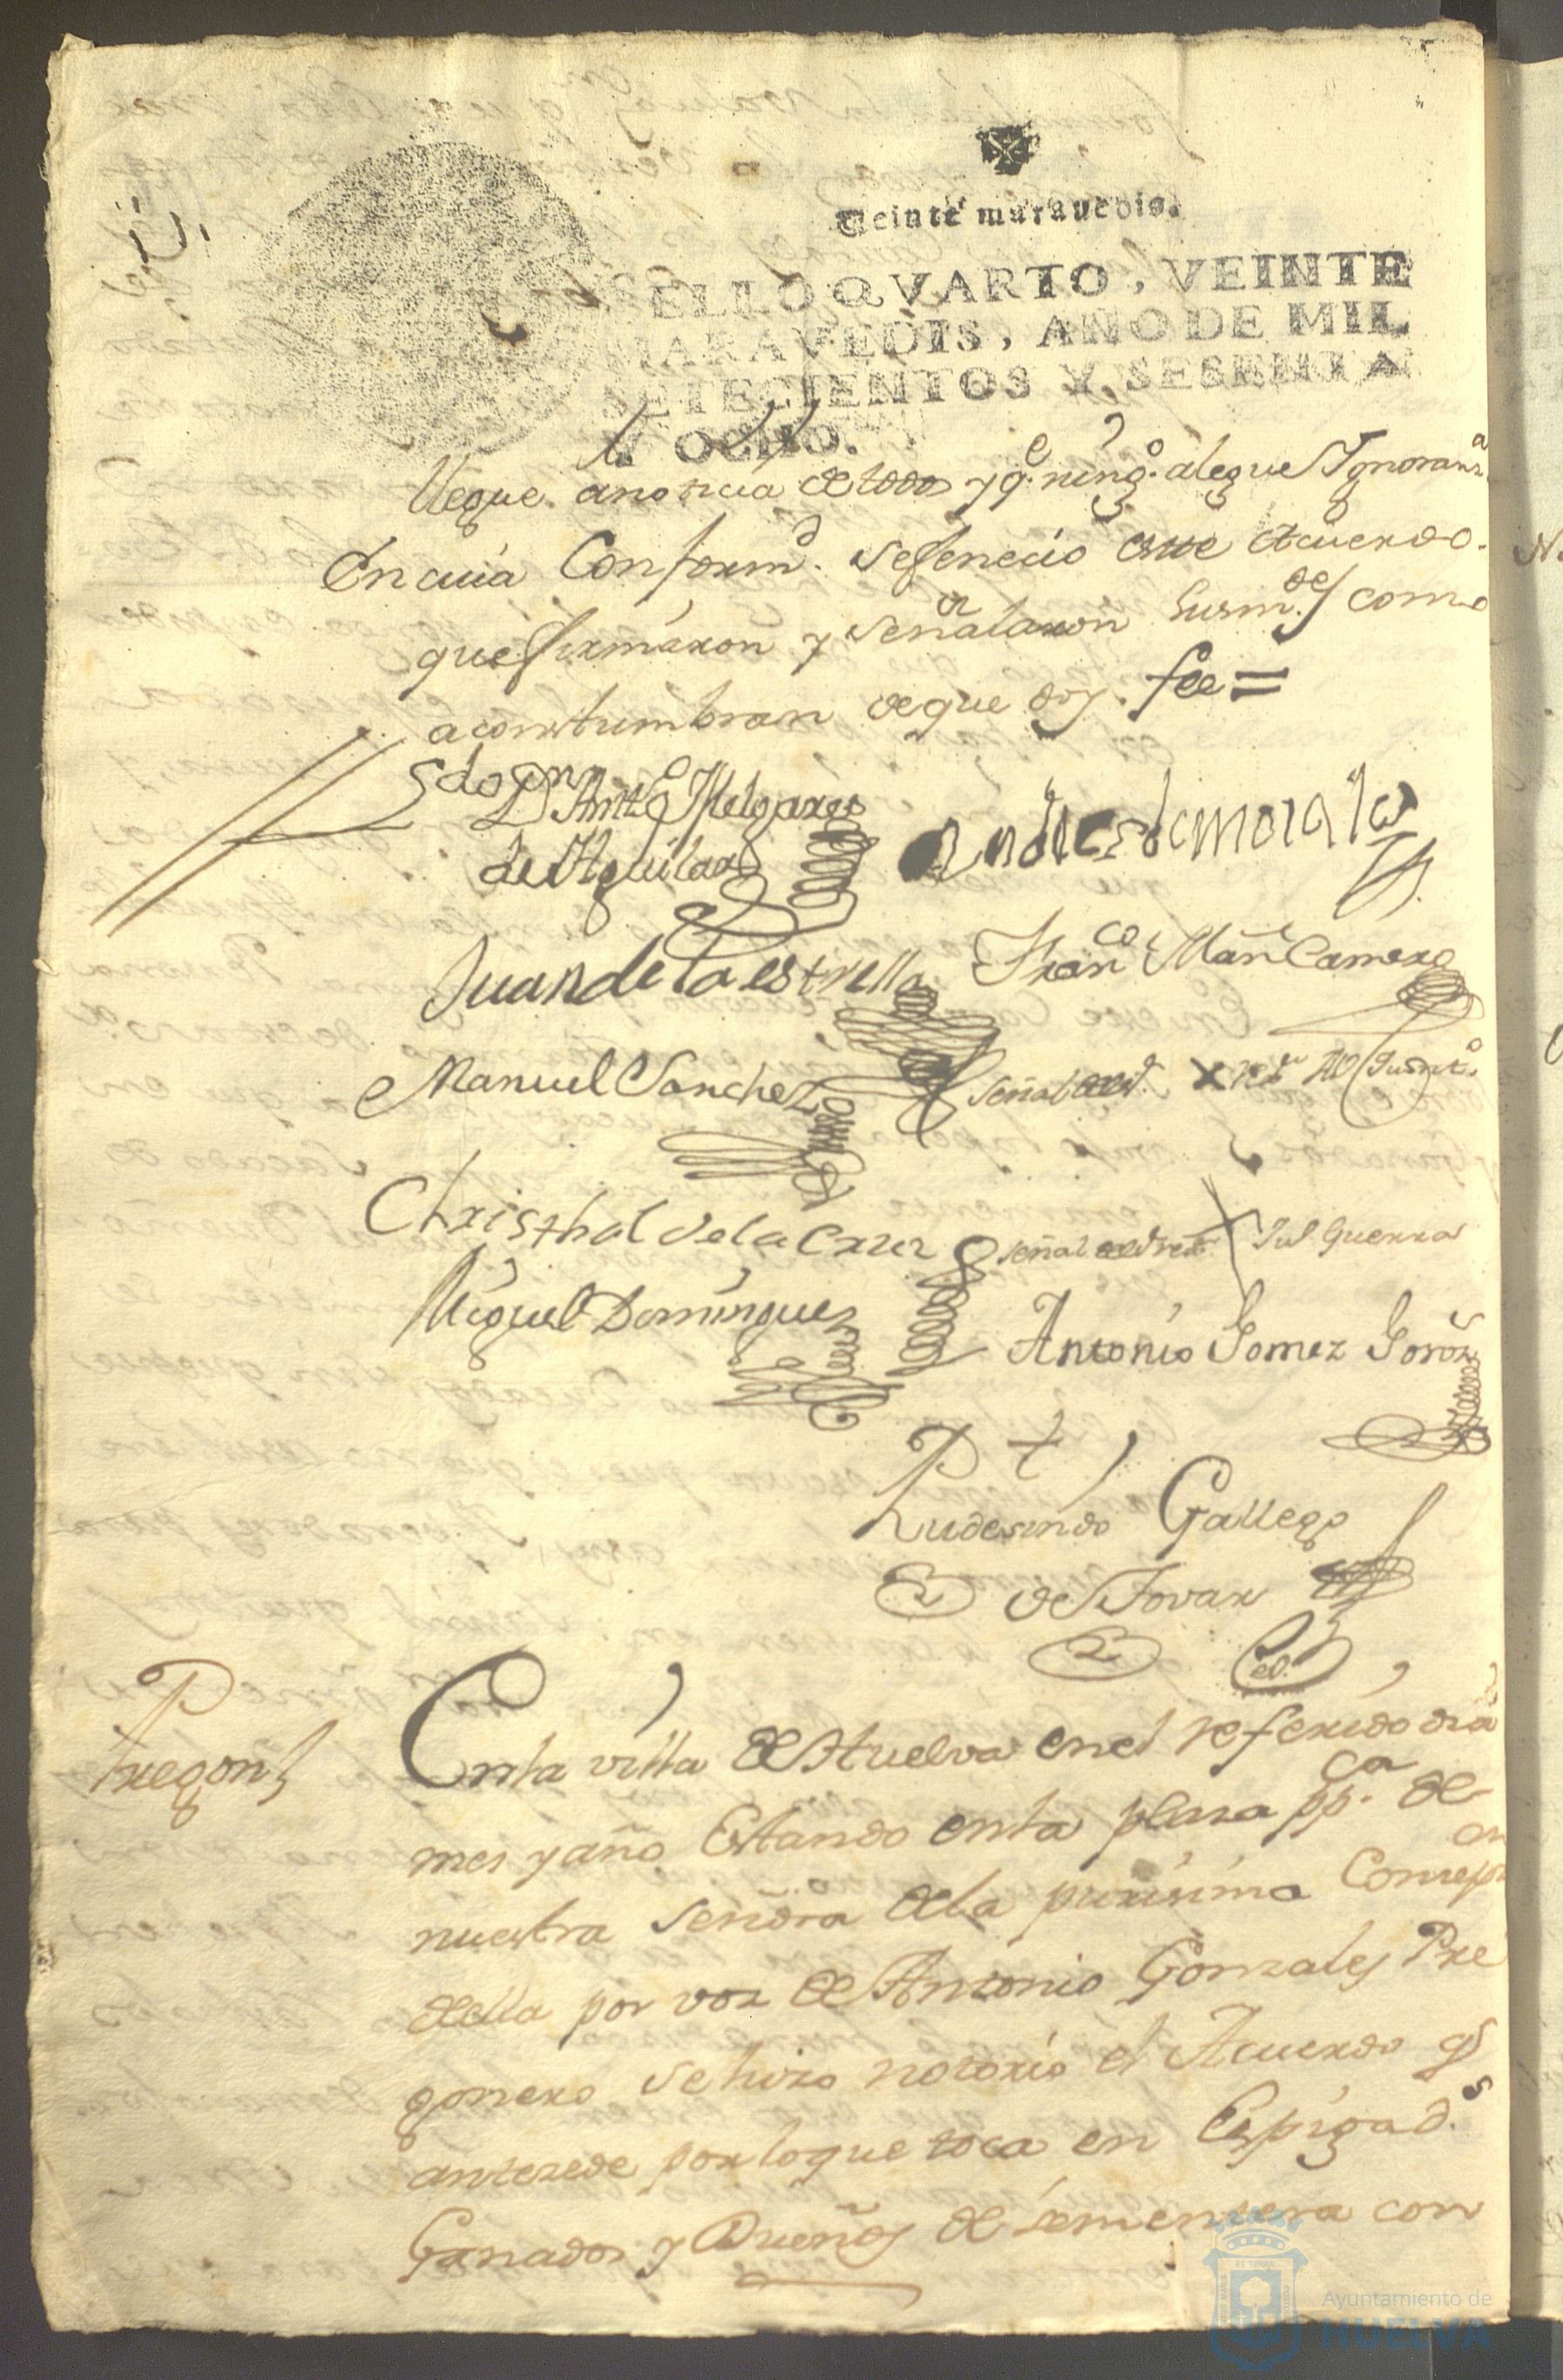 Veinte marauedis.
SELLO QVARTO, VEINTE
MARAVEDIS, AÑO DE MIL
SETECIENTOS Y SESENTA
Y OCHO.
llegue anoticia de todos y qe. ningo. alegue Ygnoranza
En cuia Conformd. sefenecio este Acuerdo
que firmaron y señalaron susmrdes como
acostumbran deque doy fee =
Dn Anto Melgarejo
de Aguilar
Andres de morales
Juan de la estrella
Franco Man Camero
Manuel Sanchez
señal del X
Christhal de la Cruz
señal del X Jul Guerra
Miguel Dominguez
Antonio Gomez
Rudesindo Gallego
de Tovar
Pregon
Enla villa de Huelva enel referido dia
mes y año Estando enla plaza ppca. de
nuestra Señora dela purisima Concepon
della por voz de Antonio Gonzales Pre
gonero se hizo notorio el Acuerdo qe
antezede por loque toca en Espigads.
Ganados y Dueños de sementera con
Ayuntamiento de
HUELVA